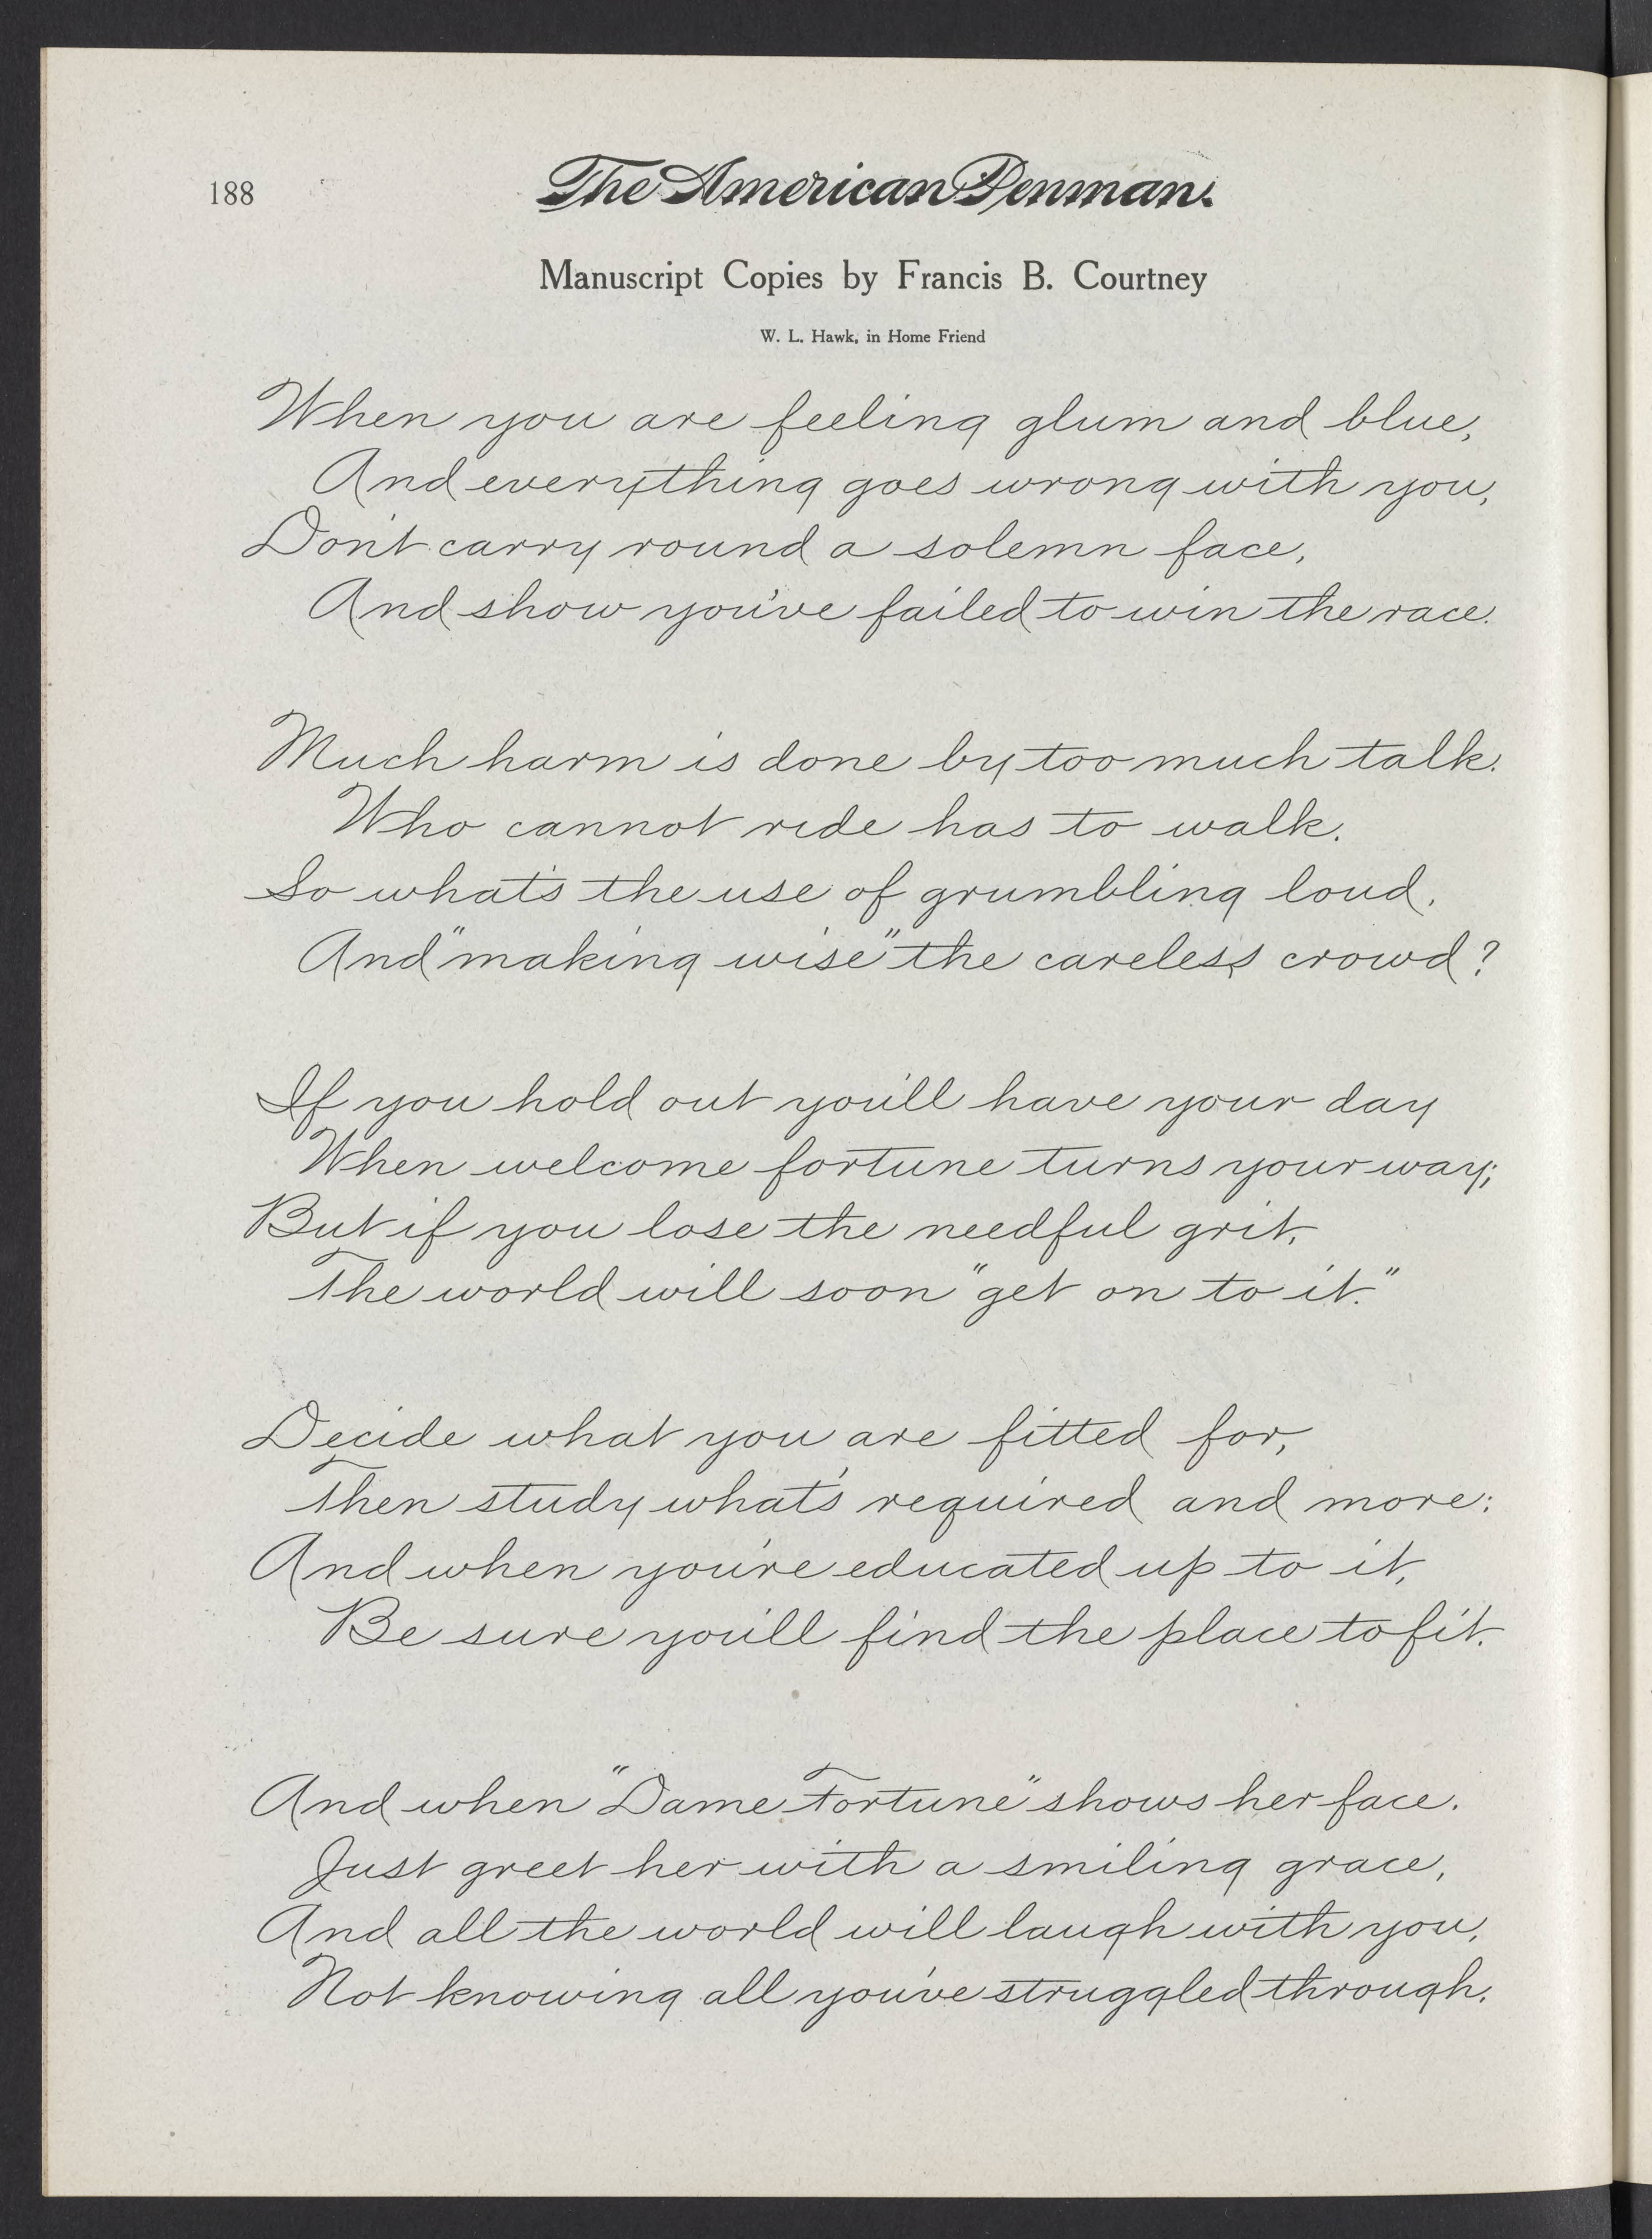 188
The American Penman.
Manuscript Copies by Francis B. Courtney
W. L. Hawk, in Home Friend
When you are feeling glum and blue,
And everything goes wrong with you,
Don't carry round a solemn face,
And show you've failed to win the race.
Much harm is done by too much talk.
Who cannot ride has to walk.
So what's the use of grumbling loud,
And "making wise" the careless crowd?
If you hold out you'll have your day
When welcome fortune turns your way;
But if you lose the needful grit,
The world will soon "get on to it."
Decide what you are fitted for,
Then study what's required and more:
And when you're educated up to it,
Be sure you'll find the place to fit.
And when "Dame Fortune" shows her face.
Just greet her with a smiling grace,
And all the world will laugh with you,
Not knowing all you've struggled through.